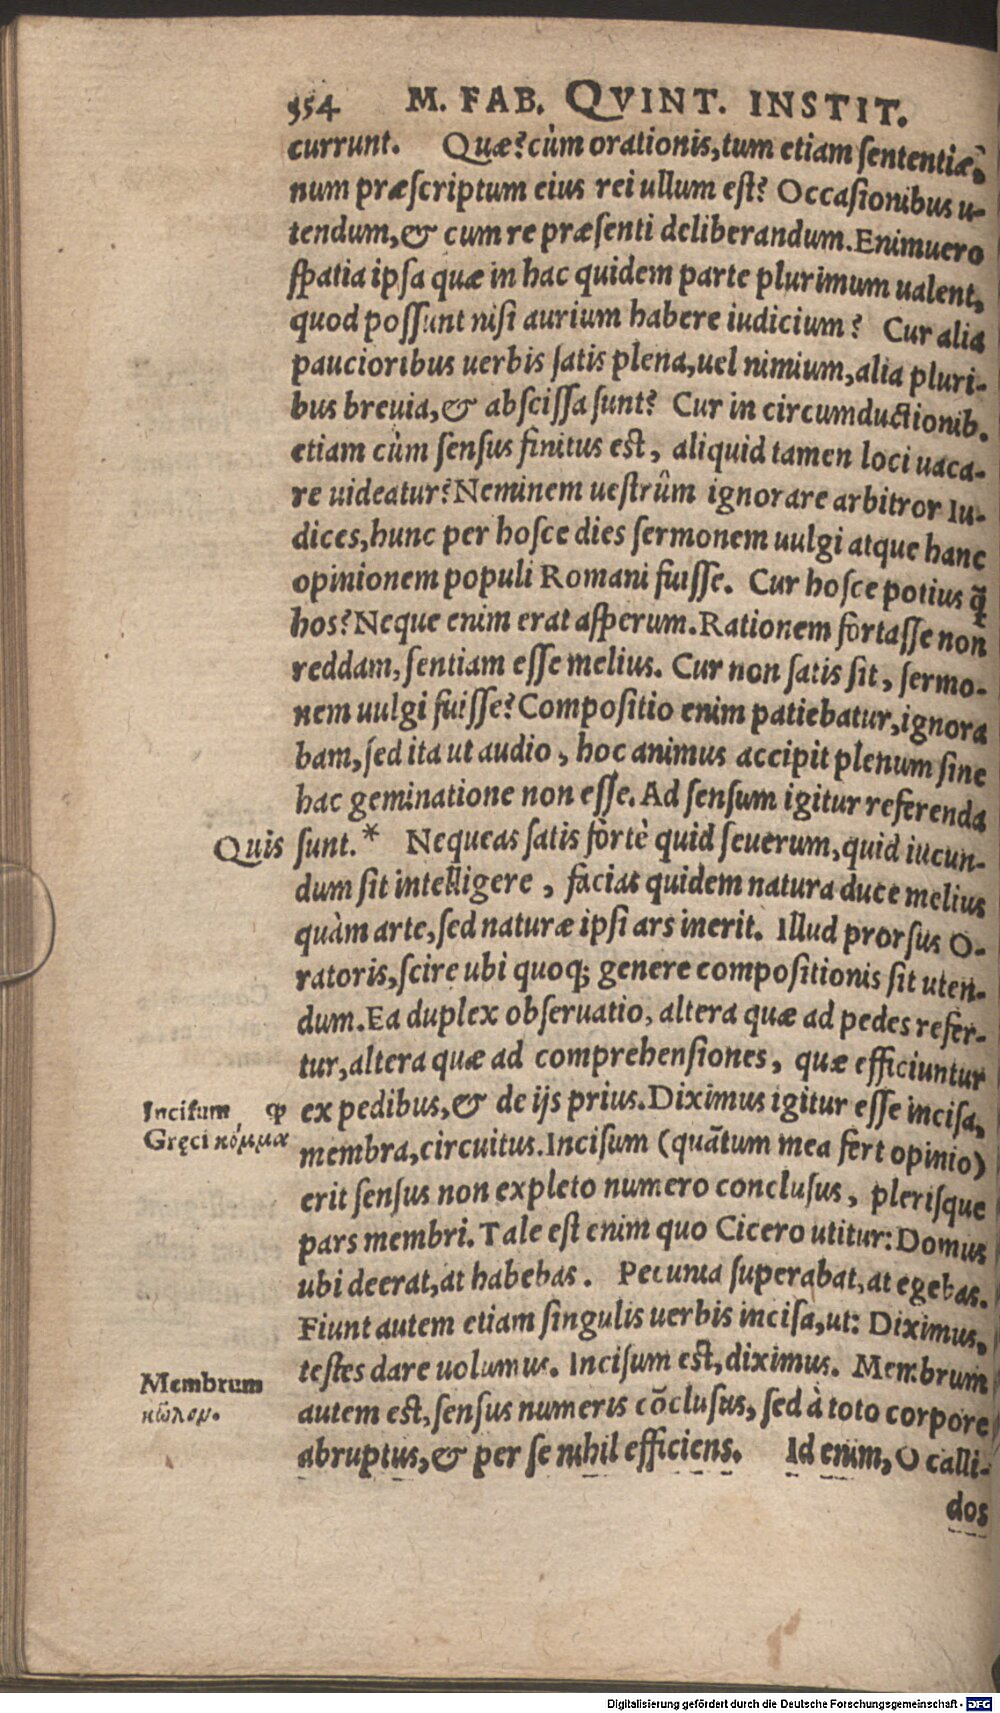 554 M. FAB. QVINT. INSTIT.
currunt. Quæ? cùm orationis, tum etiam sententiæ,
num præscriptum eius rei ullum est? Occasionibus u-
tendum, & cum re præsenti deliberandum. Enimuero
spatia ipsa quæ in hac quidem parte plurimum ualent,
quod possunt nisi aurium habere iudicium? Cur alia
paucioribus uerbis satis plena, uel nimium, alia pluri-
bus breuia, & abscissa sunt? Cur in circumductionib.
etiam cùm sensus finitus est, aliquid tamen loci uaca-
re uideatur? Neminem uestrûm ignorare arbitror Iu-
dices, hunc per hosce dies sermonem uulgi atque hanc
opinionem populi Romani fuisse. Cur hosce potius q̃
hos? Neque enim erat asperum. Rationem fortasse non
reddam, sentiam esse melius. Cur non satis sit, sermo-
nem uulgi fuisse? Compositio enim patiebatur, ignora
bam, sed ita ut audio, hoc animus accipit plenum sine
hac geminatione non esse. Ad sensum igitur referenda
Quis sunt.* Nequeas satis fortè quid seuerum, quid iucun-
dum sit intelligere, facias quidem natura duce melius
quàm arte, sed naturæ ipsi ars inerit. Illud prorsus O-
ratoris, scire ubi quoq; genere compositionis sit uten-
dum. Ea duplex obseruatio, altera quæ ad pedes refer-
tur, altera quæ ad comprehensiones, quæ efficiuntur
Incisum ꝙ ex pedibus, & de ijs prius. Diximus igitur esse incisa,
Gręci κόμμα membra, circuitus. Incisum (quãtum mea fert opinio)
erit sensus non expleto numero conclusus, plerisque
pars membri. Tale est enim quo Cicero utitur: Domus
ubi deerat, at habebas. Pecunia superabat, at egebas.
Fiunt autem etiam singulis uerbis incisa, ut: Diximus,
testes dare uolumus. Incisum est, diximus. Membrum
Membrum autem est, sensus numeris cõclusus, sed à toto corpore
κῶλον. abruptus, & per se nihil efficiens. Id enim, O calli-
dos
Digitalisierung gefördert durch die Deutsche Forschungsgemeinschaft - DFG